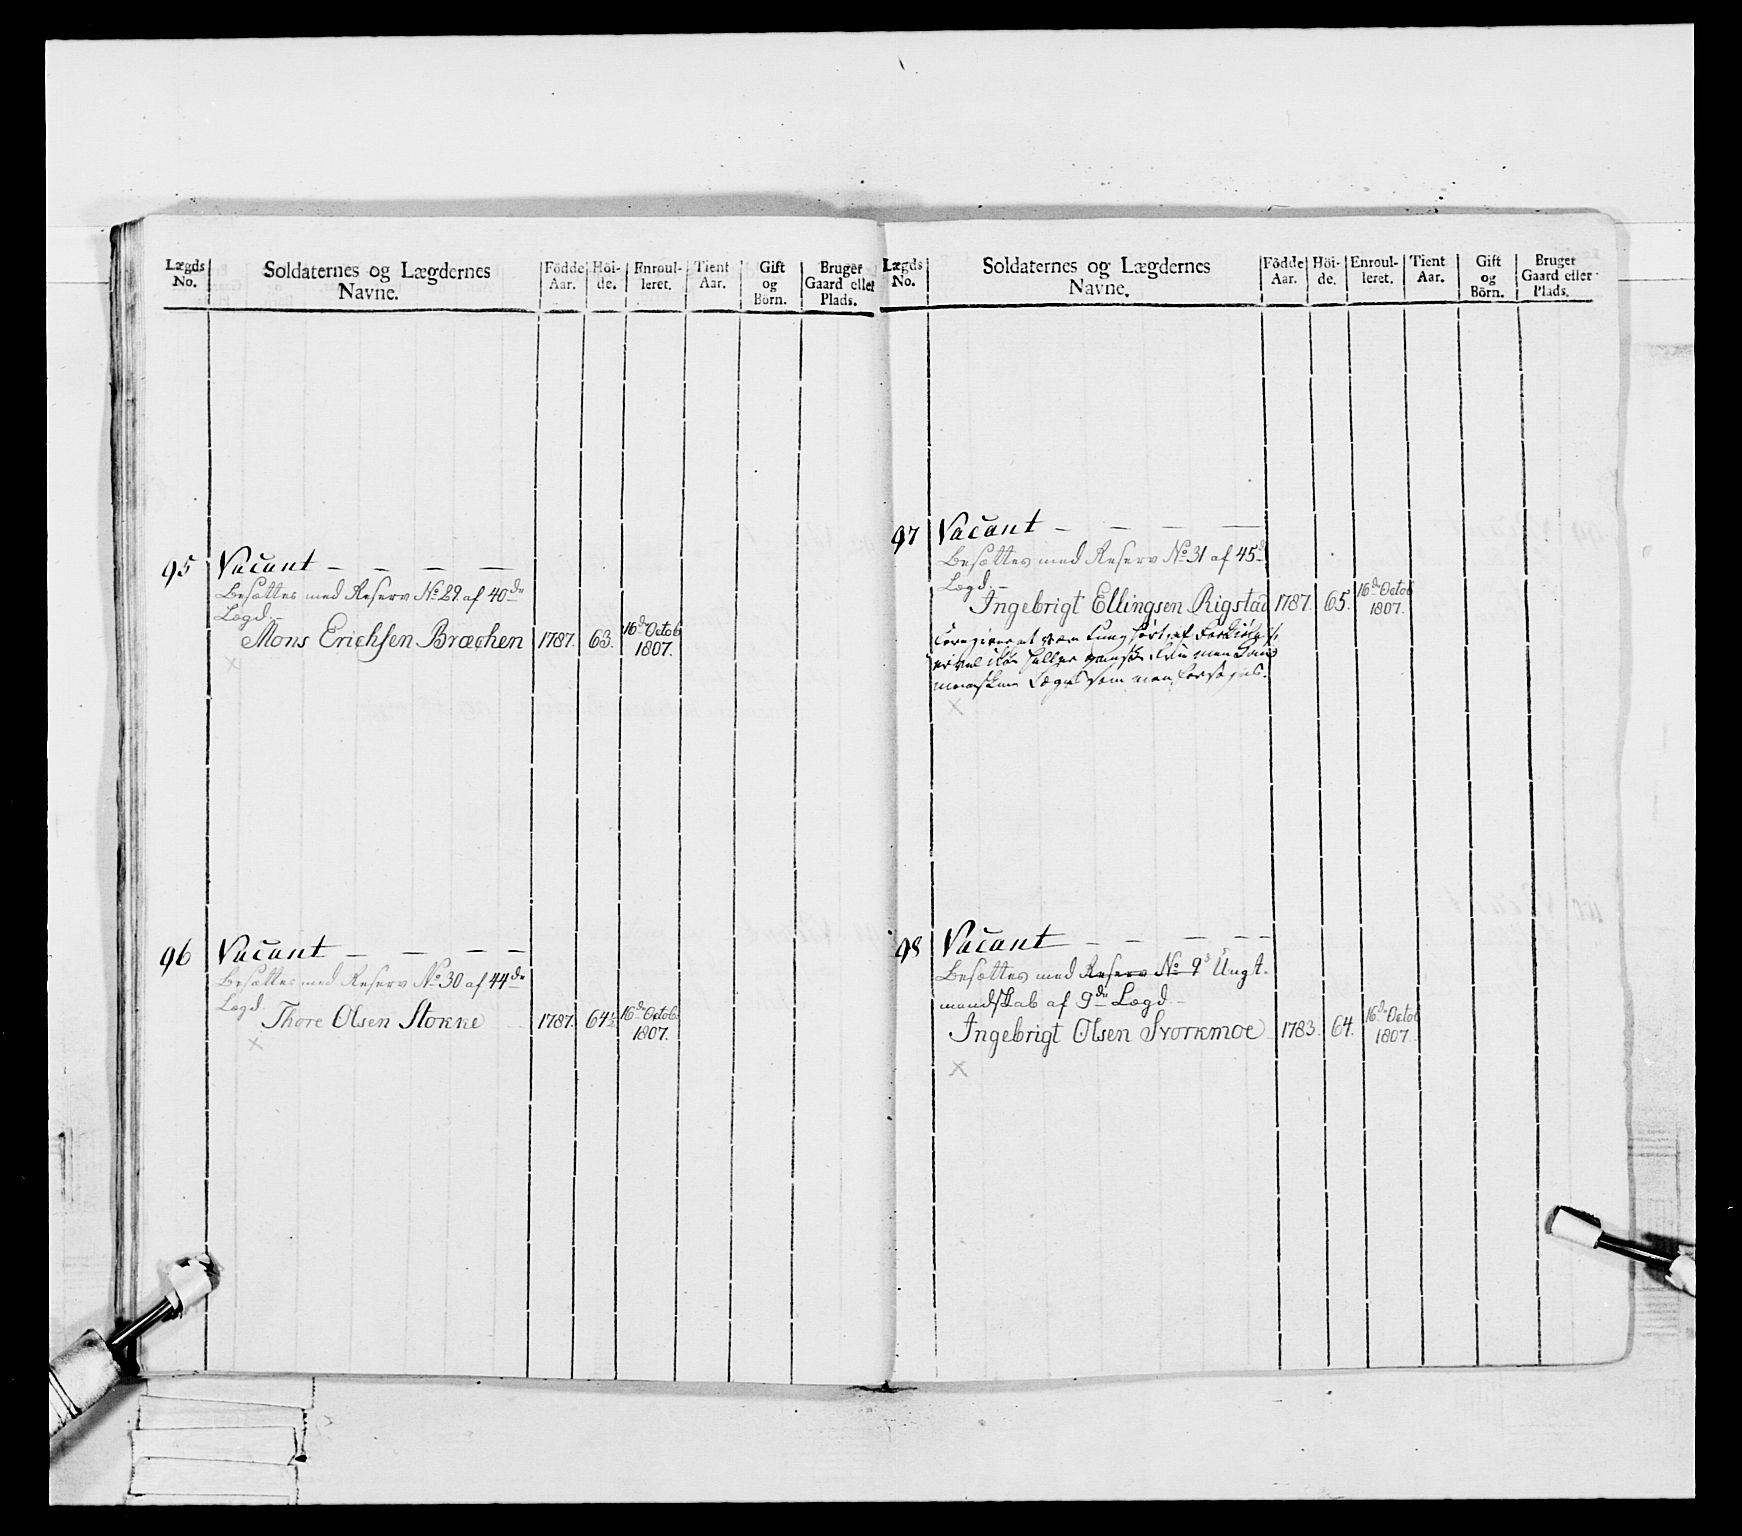 Lægds No. | Soldaternes og Lægdernes Navne. | Födde Aar. | Höi-de. | Enroul-leret. | Tient Aar. | Gift og Börn. | Bruger Gaard eller Plads.
95 Vacant – – – –
Besættes med Reserv No 29 af 40de
Lægd. –
Mons Erichsen Bræchen | 1787. | 63. | 16de Octob 1807.
×
96 Vacant – – – –
Besættes med Reserv No 30 af 44de
Lægd
Thore Olsen Stokke | 1787. | 64½ | 16de Octob. 1807.
×
Lægds No. | Soldaternes og Lægdernes Navne. | Födde Aar. | Höi-de. | Enroul-leret. | Tient Aar. | Gift og Börn. | Bruger Gaard eller Plads.
97 Vacant – – – –
Besættes med Reserv No 31 af 45de
Lægd. –
Ingebrigt Ellingsen Rigstad | 1787. | 65. | 16de Octob 1807.
×
98 Vacant – – – – –
Besættes med Reserv No 9s Ungt
mandskab af 9de Lægd –
Ingebrigt Olsen Svorkmoe | 1783. | 64. | 16de Octob 1807.
×